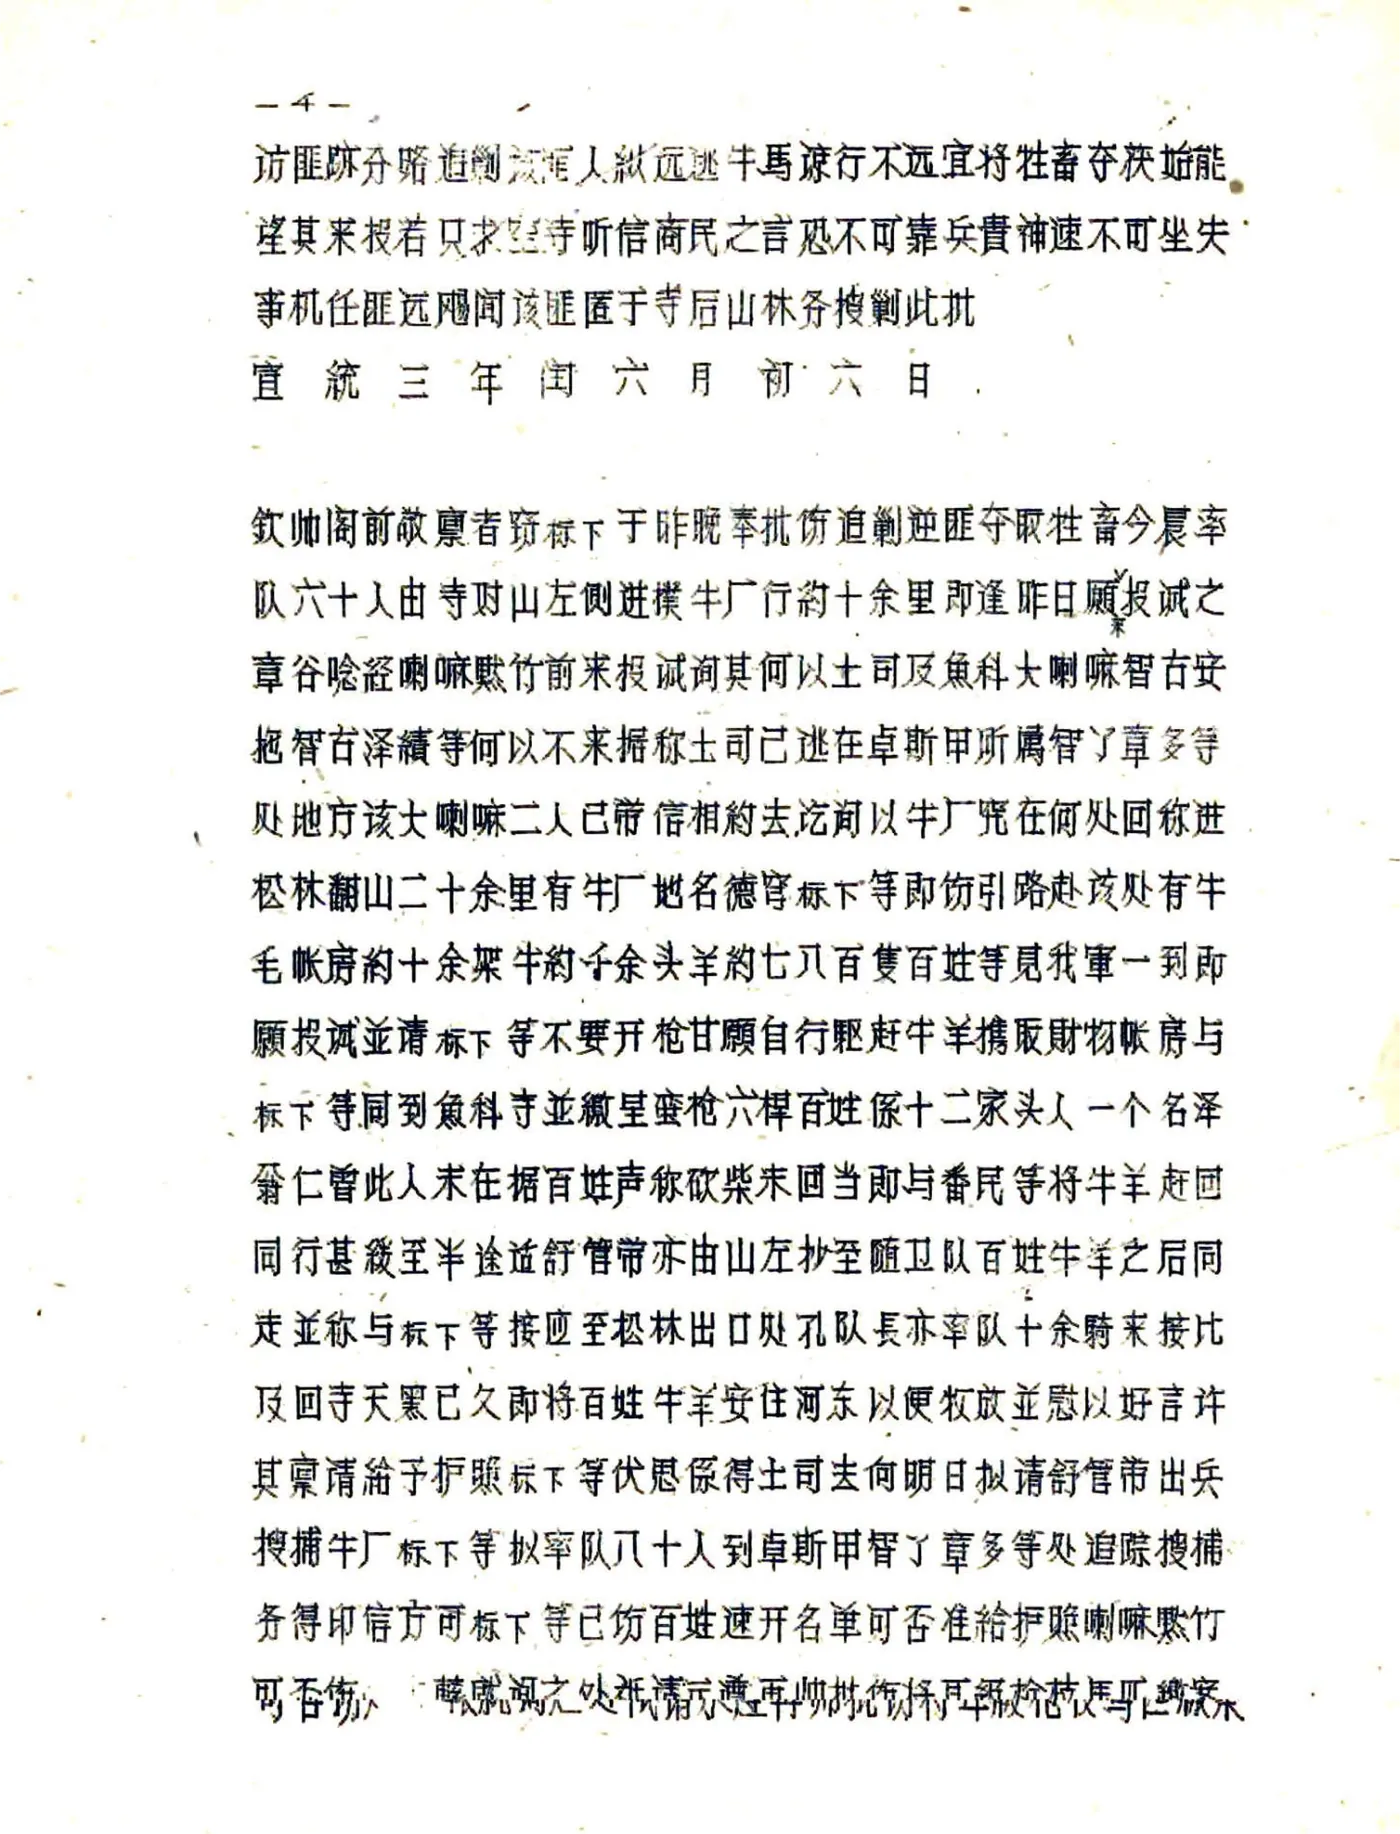 —4—
访匪跡分路追剿该匪人紙远逃牛馬谅行不远宜将牲畜夺获始能
望其来投若只求至寺听信商民之言恐不可靠兵貴神速不可坐失
事机任匪远飏闻该匪匿于寺后山林务搜剿此批
宣統三年闰六月初六日
欽帅阁前敬禀者窃标下于昨晚奉批饬追剿逆匪夺取牲畜今晨率
队六十人由寺对山左側进撲牛厂行約十余里即逢昨日願来投诚之
章谷唸經喇嘛黙竹前来投诚询其何以土司及魚科大喇嘛智古安
抱智古泽績等何以不来据称土司已逃在卓斯甲所属智了章多等
处地方该大喇嘛二人已带信相約去讫询以牛厂究在何处回称进
松林翻山二十余里有牛厂地名德穹标下等即饬引路赴该处有牛
毛帐房約十余架牛約千余头羊約七八百隻百姓等見我軍一到即
願投诚並请标下等不要开枪甘願自行駆赶牛羊携取財物帐房与
标下等同到魚科寺並缴呈蛮枪六桿百姓係十二家头人一个名泽
翁仁曾此人未在据百姓声称砍柴未回当即与番民等将牛羊赶回
同行甚緩至半途适舒管带亦由山左抄至随卫队百姓牛羊之后同
走並称与标下等接应至松林出口处孔队長亦率队十余騎来接比
及回寺天黑已久即将百姓牛羊安住河东以便牧放並慰以好言许
其禀请給予护照标下等伏思係得土司去向明日拟请舒管带出兵
搜捕牛厂标下等拟率队八十人到卓斯甲智了章多等处追踪搜捕
务得印信方可标下等已饬百姓速开名单可否准給护照喇嘛黙竹
可否饬